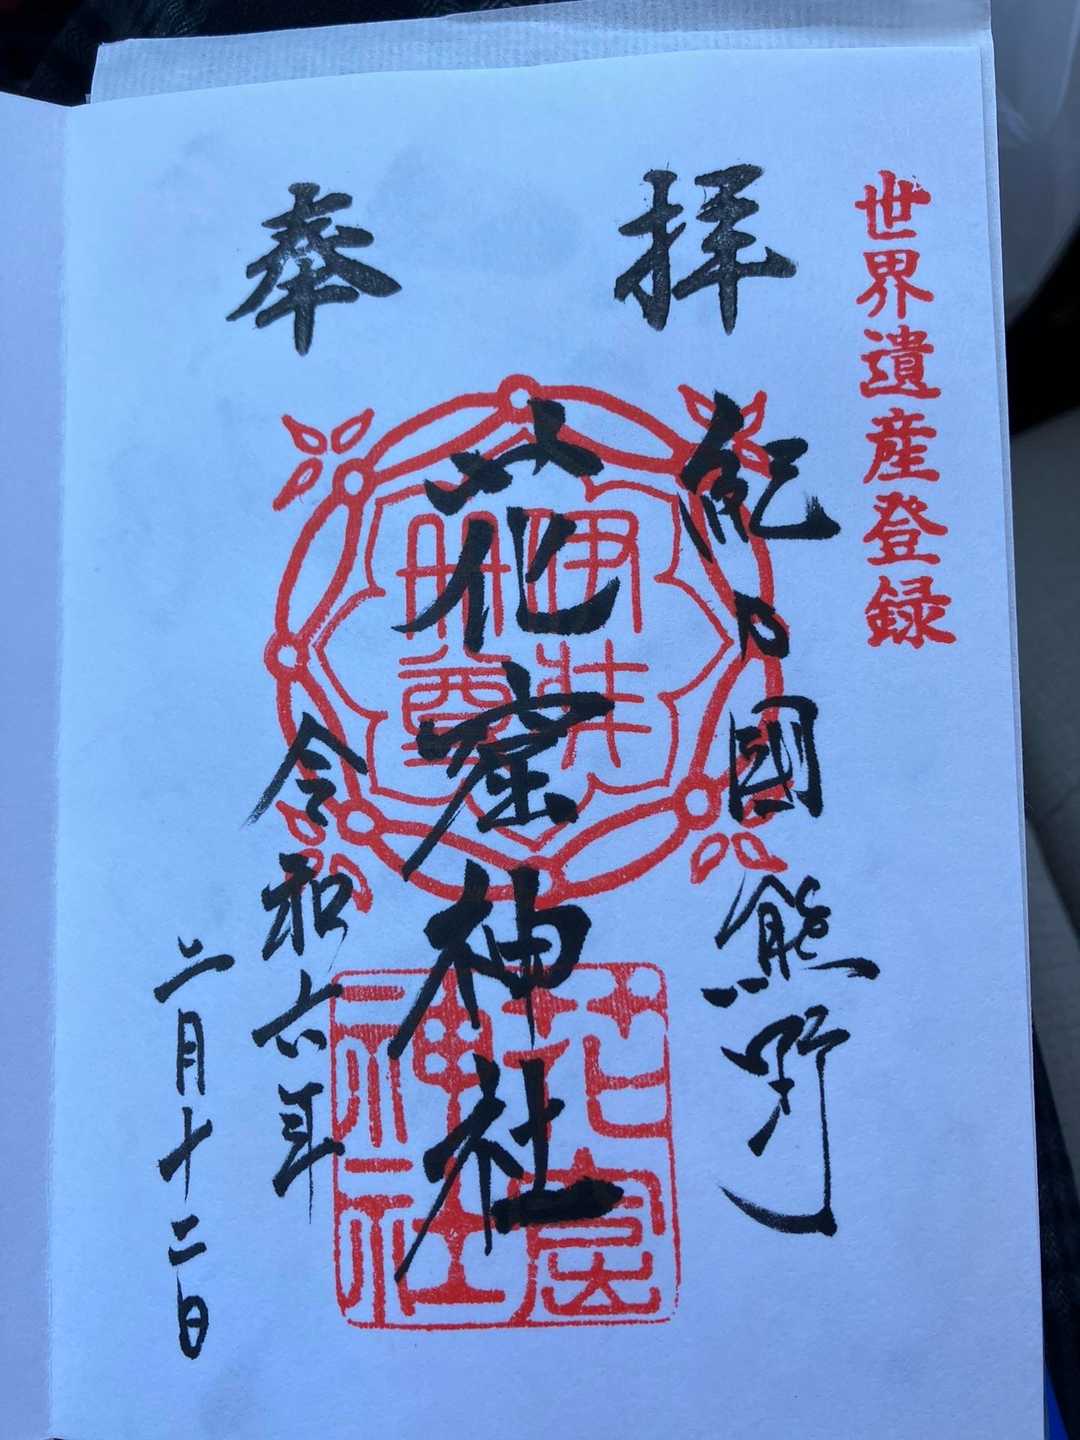 世界遺産登録
奉拝
紀の國熊野
花窟神社
令和六年
二月十二日
伊弉
冊尊
花窟
神社